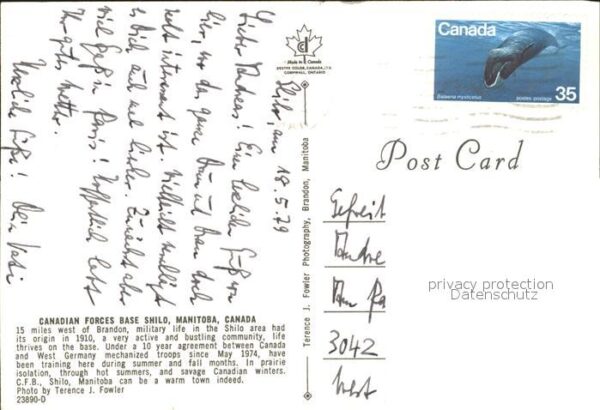 Shilo, am 18.5.79
Lieber Andreas! Ein herzlichen Gruß von
hier, wo da ganze drum und dran doch
recht interessant ist. Vielleicht
es Dich auch mal hierher. Zunächst aber
viel Spaß in Paris! Hoffentlich habt
Ihr gutes Wetter.
Herzliche Grüße! Dein Vati
Made in Canada
CORNWALL, ONTARIO
CANADIAN FORCES BASE SHILO, MANITOBA, CANADA
15 miles west of Brandon, military life in the Shilo area had
its origin in 1910, a very active and bustling community, life
thrives on the base. Under a 10 year agreement between Canada
and West Germany mechanized troops since May 1974, have
been training here during summer and fall months. In prairie
isolation, through hot summers, and savage Canadian winters.
C.F.B., Shilo, Manitoba can be a warm town indeed.
Photo by Terence J. Fowler
23890-D
Terence J. Fowler Photography, Brandon, Manitoba
Canada
Balaena mysticetus
postes postage
35
Post Card
Gefreit
Andre
3042
West
privacy protection
Datenschutz